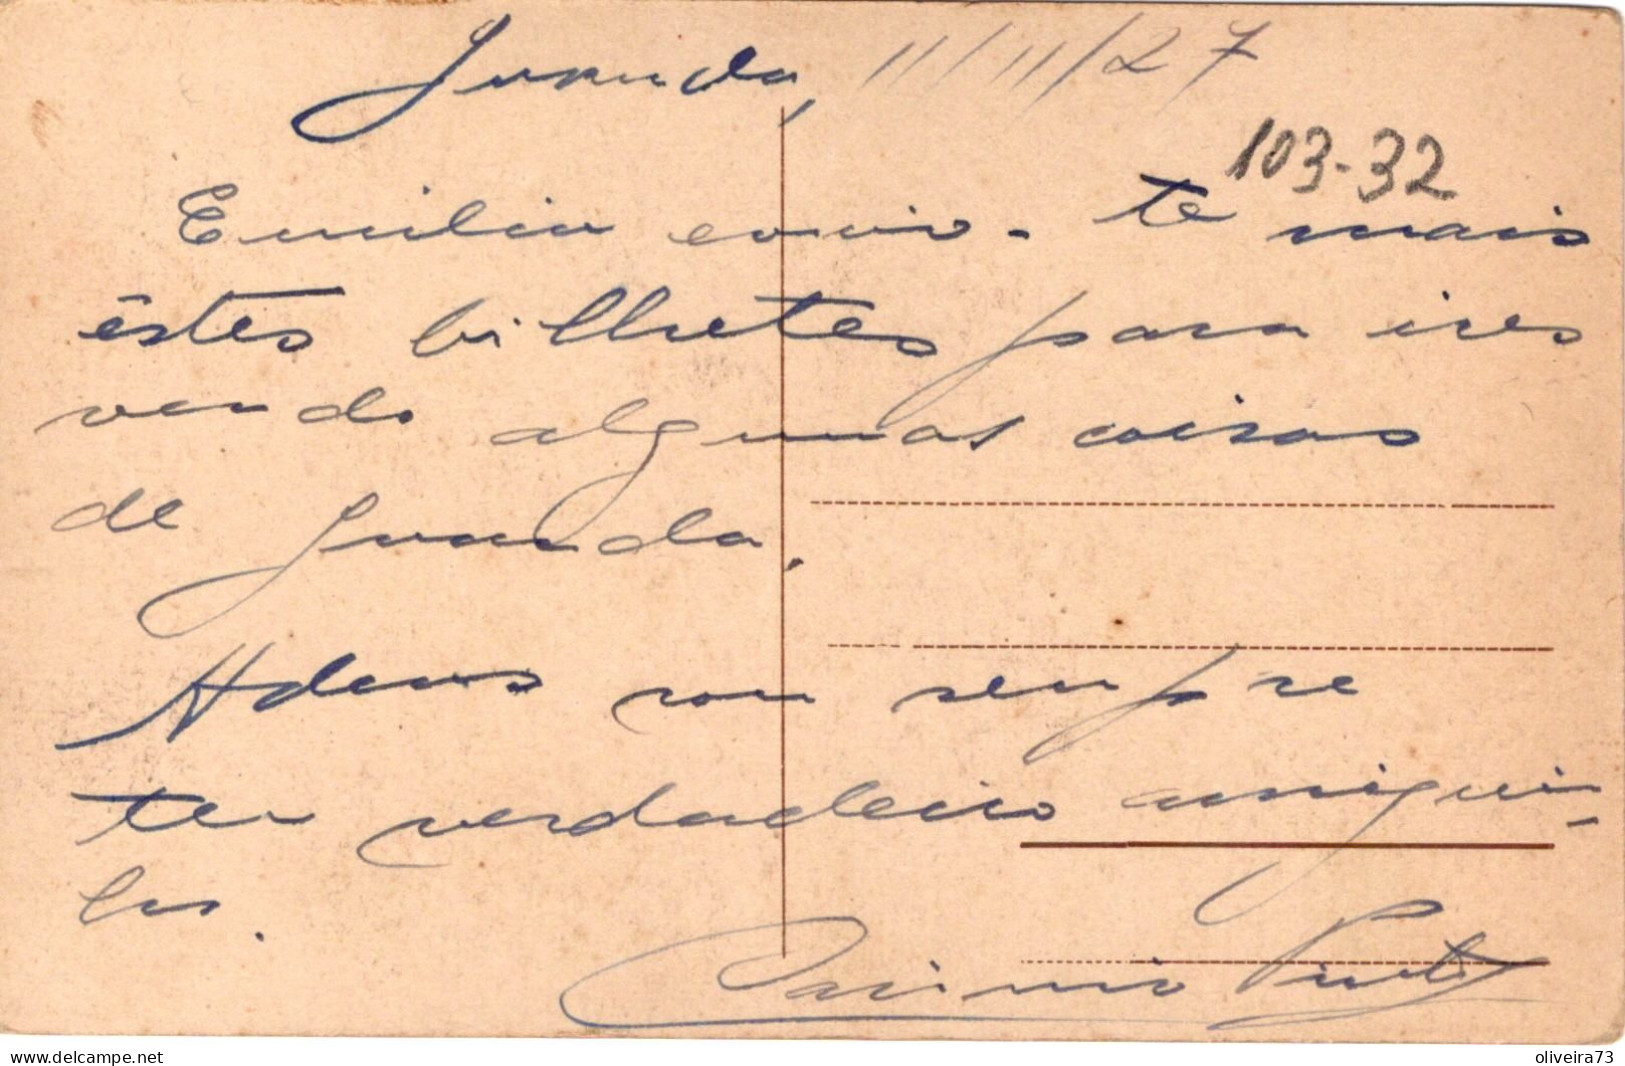 Juanda, 11/11/27
103-32
Emilia envio-te mais
êstes bilhetes para ires
vendo algumas coisas
de Juanda.
Adeus sou sempre
teu verdadeiro amigui-
los.
Casimiro Pinto
www.delcampe.net
oliveira73